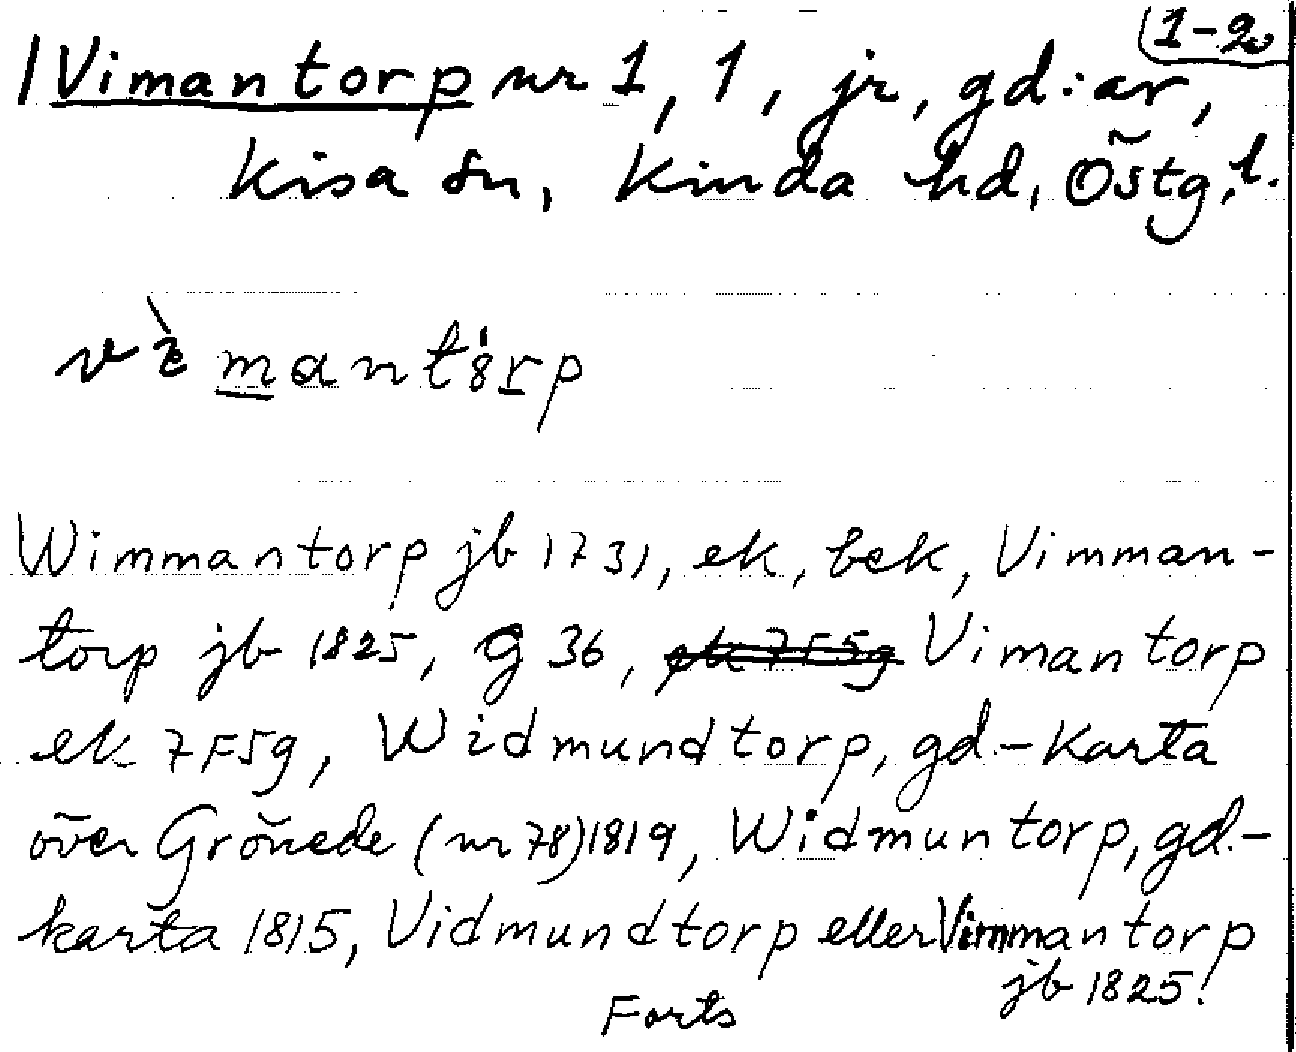 1-2
Vimantorp nr 1, 1, jr, gd:ar,
Kisa sn, Kinda hd, Östg.l.
Wimmantorp jb 1731, ek, bek, Vimman-
torp jb 1825, G 36, ek 7F5g Vimantorp
ek 7F5g, Widmundtorp, gd-karta
över Grönede (nr 78) 1819, Widmuntorp, gd-
karta 1815, Vidmundtorp eller Vimmantorp
jb 1825.
Forts